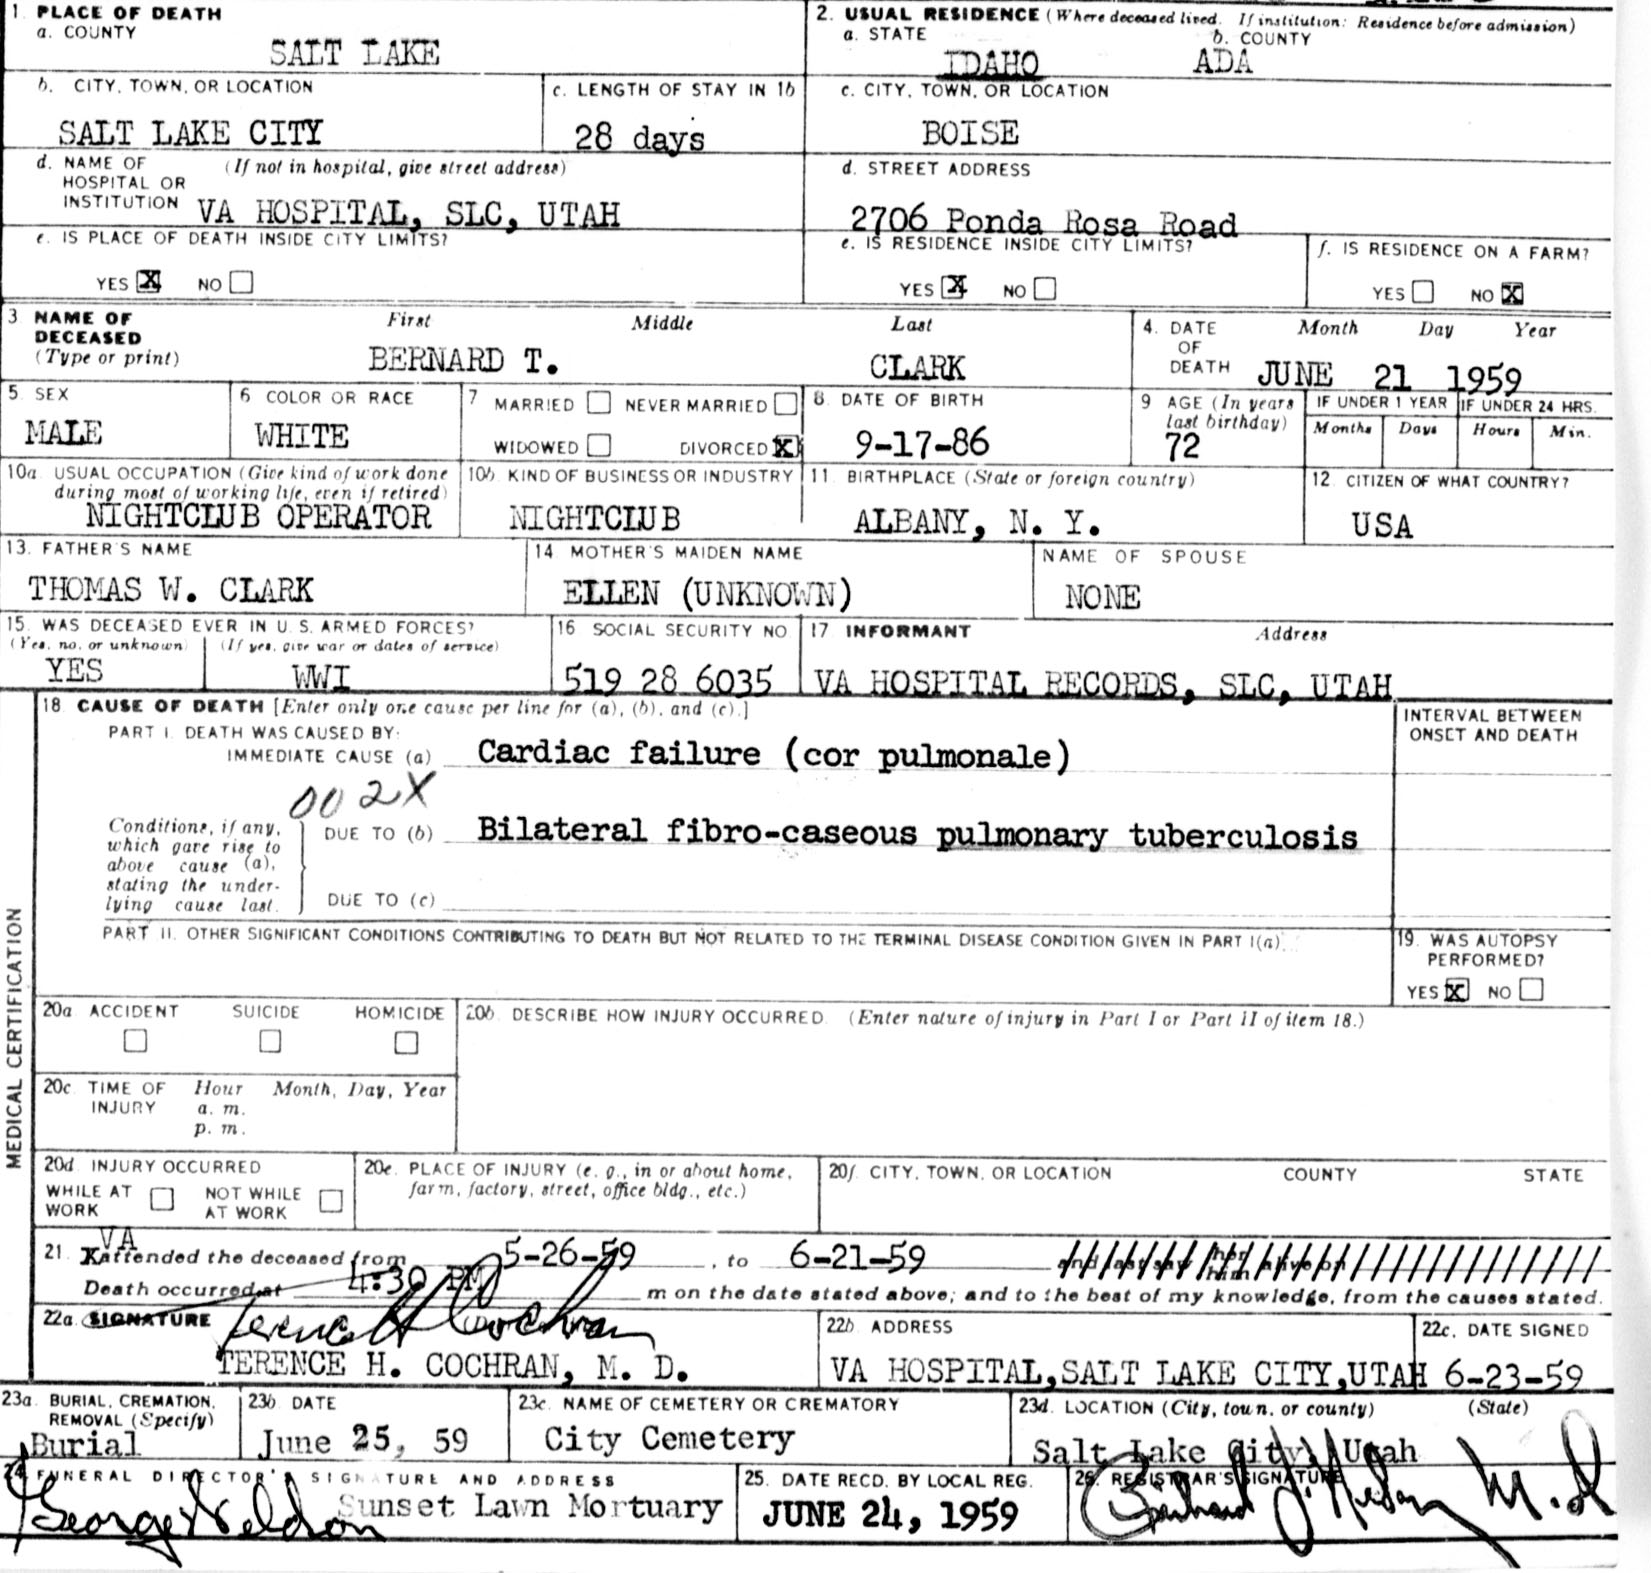 1. PLACE OF DEATH
a. COUNTY
SALT LAKE
2. USUAL RESIDENCE (Where deceased lived. If institution: Residence before admission)
a. STATE b. COUNTY
IDAHO ADA
b. CITY, TOWN, OR LOCATION
SALT LAKE CITY
c. LENGTH OF STAY IN 1b
28 days
c. CITY, TOWN, OR LOCATION
BOISE
d. NAME OF (If not in hospital, give street address)
HOSPITAL OR
INSTITUTION VA HOSPITAL, SLC, UTAH
d. STREET ADDRESS
2706 Ponda Rosa Road
e. IS PLACE OF DEATH INSIDE CITY LIMITS?
YES X NO
e. IS RESIDENCE INSIDE CITY LIMITS?
YES X NO
f. IS RESIDENCE ON A FARM?
YES NO X
3 NAME OF First Middle Last
DECEASED
(Type or print) BERNARD T. CLARK
4. DATE Month Day Year
OF
DEATH JUNE 21 1959
5. SEX
MALE
6 COLOR OR RACE
WHITE
7 MARRIED NEVER MARRIED
WIDOWED DIVORCED X
8. DATE OF BIRTH
9-17-86
9 AGE (In years
last birthday)
72
IF UNDER 1 YEAR IF UNDER 24 HRS.
Months Days Hours Min.
10a. USUAL OCCUPATION (Give kind of work done
during most of working life, even if retired)
NIGHTCLUB OPERATOR
10b. KIND OF BUSINESS OR INDUSTRY
NIGHTCLUB
11. BIRTHPLACE (State or foreign country)
ALBANY, N. Y.
12. CITIZEN OF WHAT COUNTRY?
USA
13. FATHER'S NAME
THOMAS W. CLARK
14 MOTHER'S MAIDEN NAME
ELLEN (UNKNOWN)
NAME OF SPOUSE
NONE
15. WAS DECEASED EVER IN U. S. ARMED FORCES?
(Yes, no, or unknown) (If yes, give war or dates of service)
YES WWI
16 SOCIAL SECURITY NO
519 28 6035
17 INFORMANT Address
VA HOSPITAL RECORDS, SLC, UTAH
18 CAUSE OF DEATH [Enter only one cause per line for (a), (b), and (c).]
PART I. DEATH WAS CAUSED BY:
IMMEDIATE CAUSE (a) Cardiac failure (cor pulmonale)
INTERVAL BETWEEN
ONSET AND DEATH
002X
Conditions, if any,
which gave rise to
above cause (a),
stating the under-
lying cause last.
DUE TO (b) Bilateral fibro-caseous pulmonary tuberculosis
DUE TO (c)
PART II. OTHER SIGNIFICANT CONDITIONS CONTRIBUTING TO DEATH BUT NOT RELATED TO THE TERMINAL DISEASE CONDITION GIVEN IN PART I(a)
19. WAS AUTOPSY
PERFORMED?
YES X NO
MEDICAL CERTIFICATION
20a ACCIDENT SUICIDE HOMICIDE
20b. DESCRIBE HOW INJURY OCCURRED. (Enter nature of injury in Part I or Part II of item 18.)
20c. TIME OF Hour Month, Day, Year
INJURY a. m.
p. m.
20d. INJURY OCCURRED
WHILE AT NOT WHILE
WORK AT WORK
20e. PLACE OF INJURY (e. g., in or about home,
farm, factory, street, office bldg., etc.)
20f. CITY, TOWN, OR LOCATION COUNTY STATE
VA
21. X attended the deceased from 5-26-59, to 6-21-59 and last saw her him alive on
Death occurred at 4:30 PM m on the date stated above; and to the best of my knowledge, from the causes stated.
22a. SIGNATURE Terence H Cochran
TERENCE H. COCHRAN, M. D.
22b ADDRESS
VA HOSPITAL, SALT LAKE CITY, UTAH
22c. DATE SIGNED
6-23-59
23a. BURIAL, CREMATION,
REMOVAL (Specify)
Burial
23b. DATE
June 25, 59
23c. NAME OF CEMETERY OR CREMATORY
City Cemetery
23d. LOCATION (City, town, or county) (State)
Salt Lake City, Utah
24. FUNERAL DIRECTOR'S SIGNATURE AND ADDRESS
George Sunset Lawn Mortuary
25. DATE RECD. BY LOCAL REG.
JUNE 24, 1959
26. REGISTRAR'S SIGNATURE
M.D